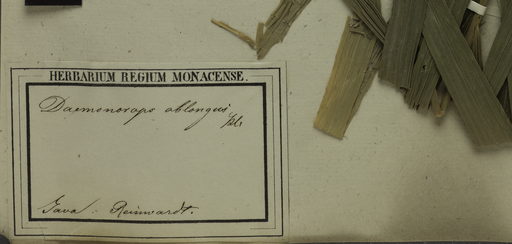 HERBARIUM REGIUM MONACENSE.
Daemonorops oblongus
Java. Reinwardt.